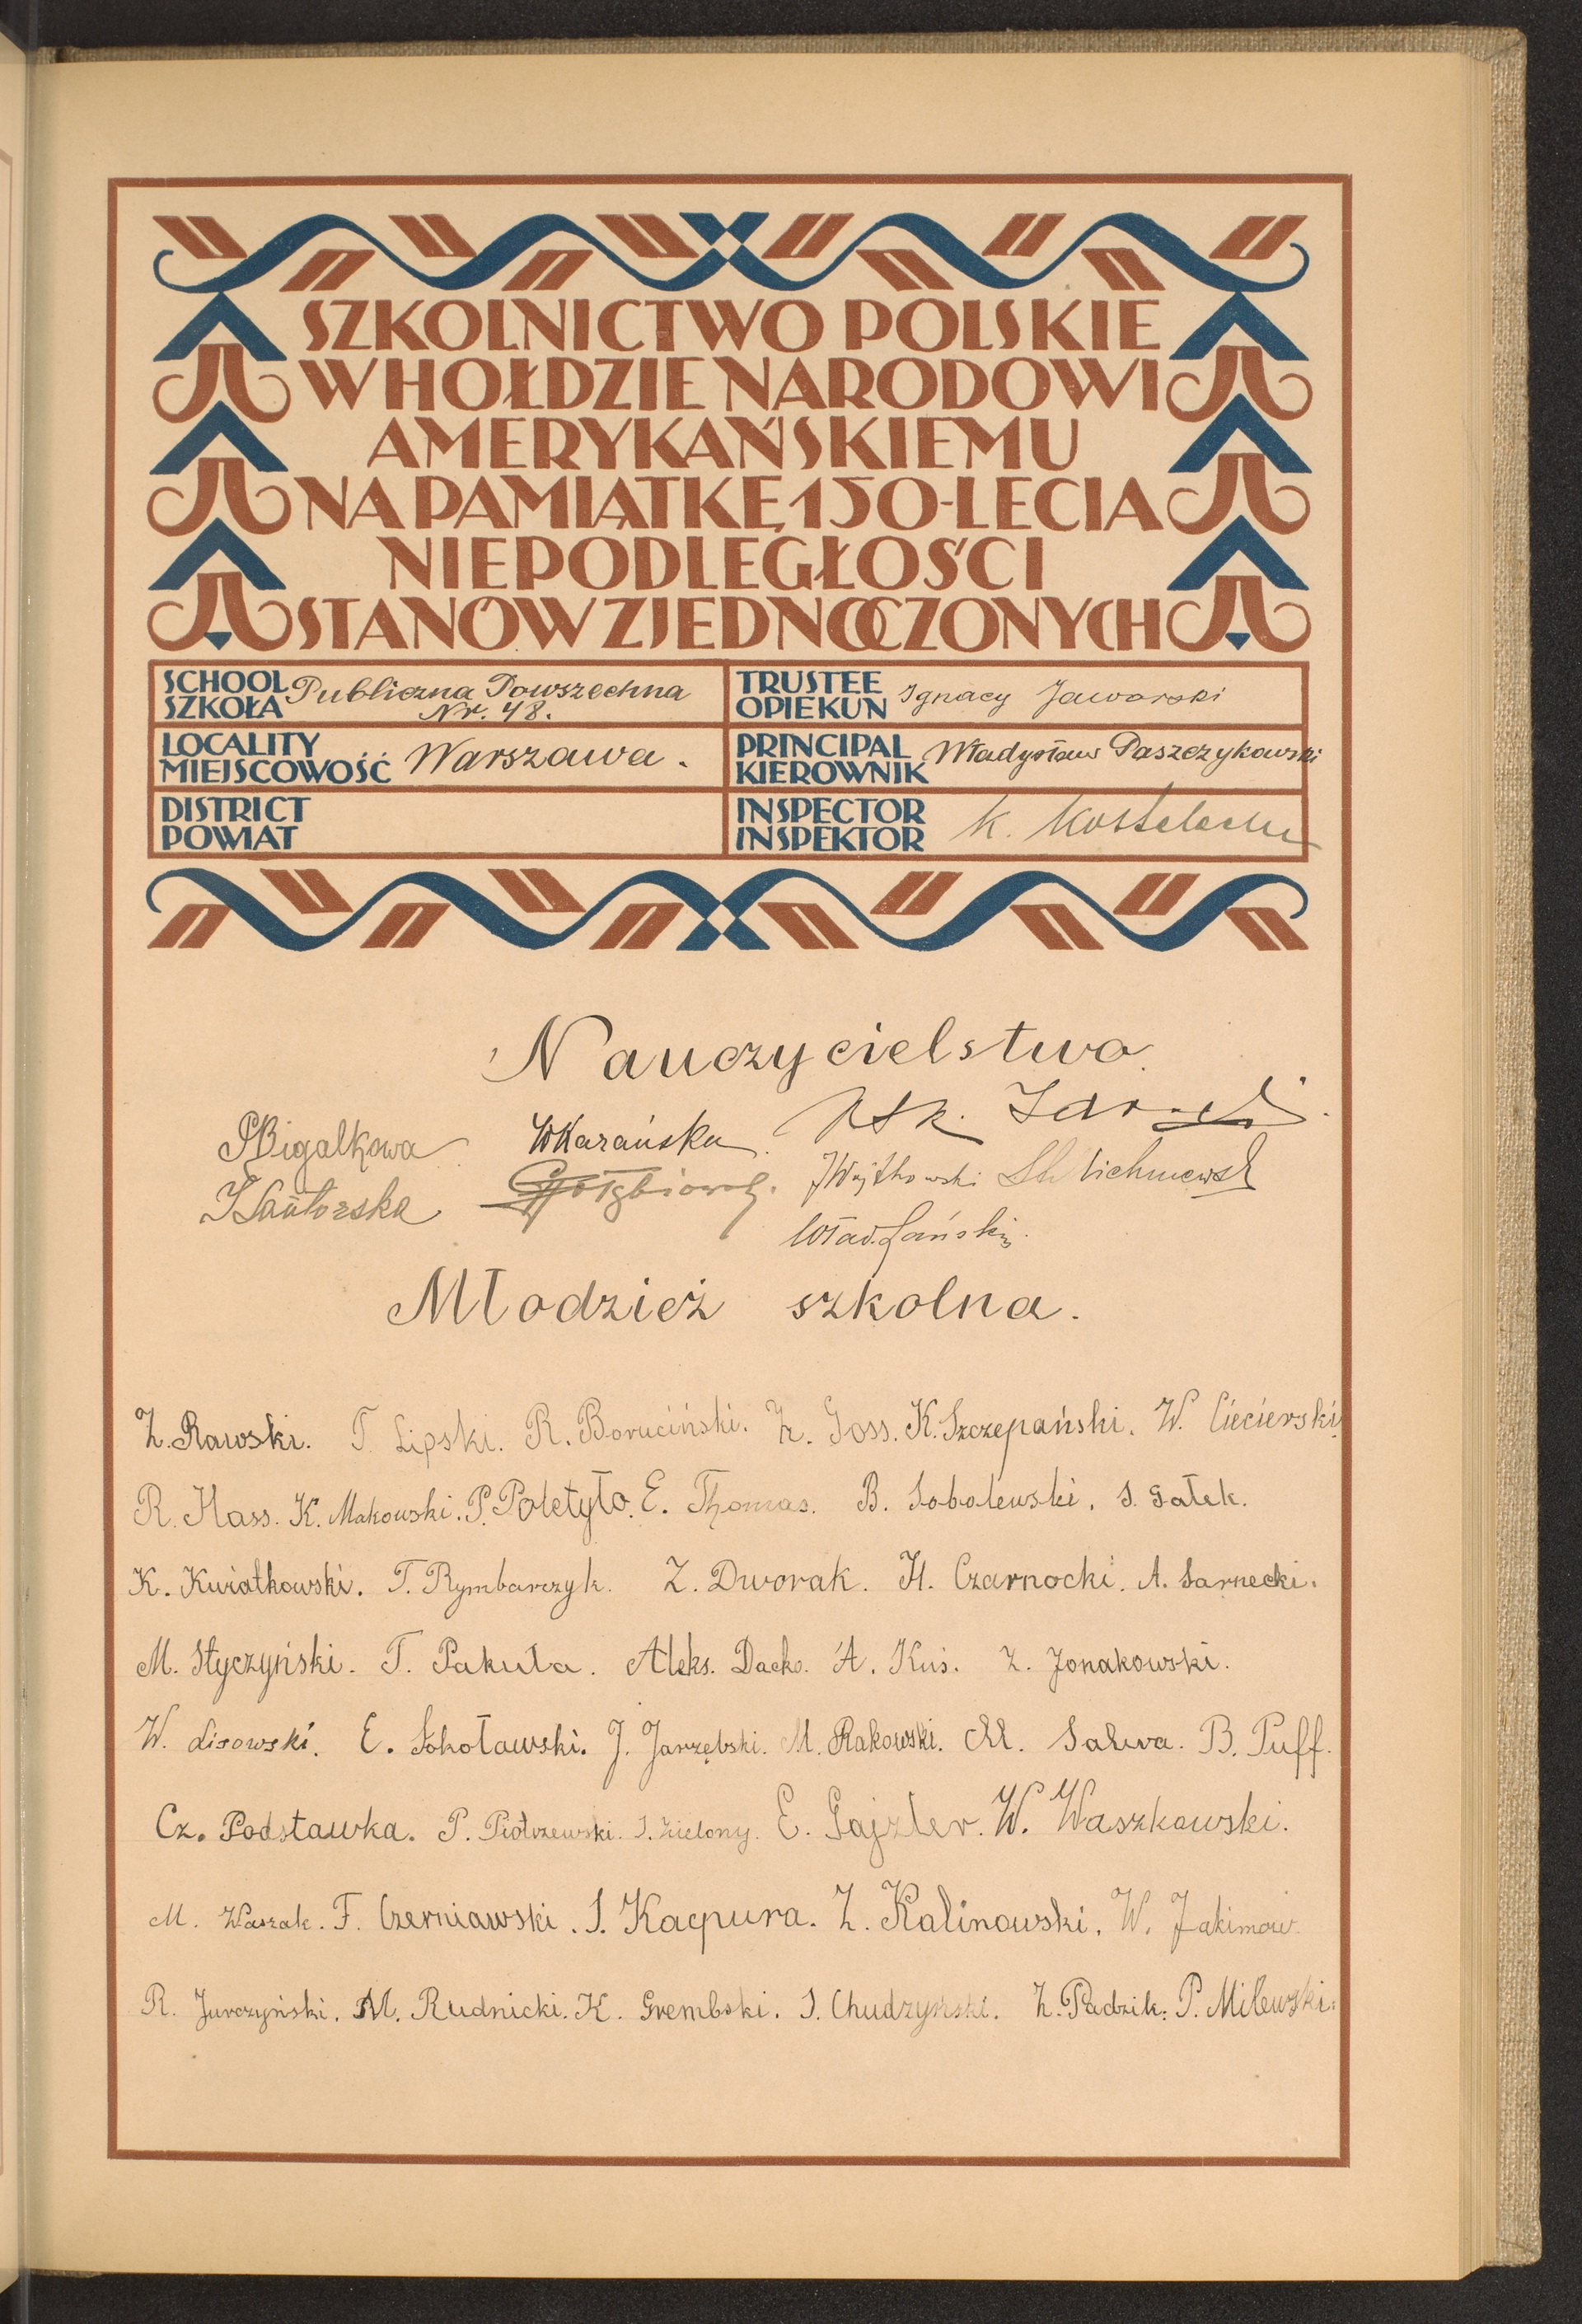 SZKOLNICTWO POLSKIE
W HOŁDZIE NARODOWI
AMERYKAŃSKIEMU
NA PAMIĄTKĘ 150-LECIA
NIEPODLEGŁOŚCI
STANÓW ZJEDNOCZONYCH
SCHOOL SZKOŁA Publiczna Powszechna Nr. 48.
TRUSTEE OPIEKUN Ignacy Jaworski
LOCALITY MIEJSCOWOŚĆ Warszawa.
PRINCIPAL KIEROWNIK Władysław Paszczykowski
DISTRICT POWIAT
INSPECTOR INSPEKTOR K.
Nauczycielstwo
PBigalkowa WKarańska.
JSantorska JWojtkowski
Wład. Łański.
Młodzież szkolna.
Z. Rawski. T. Lipski. R. Boruciński. Z. Goss. K. Szczepański. W. Ciecierski.
R. Hass. K. Makowski. P. Poletyło. E. Thomas. B. Sobolewski. S. Gałek.
K. Kwiatkowski. T. Rymbarczyk. Z. Dworak. H. Czarnocki. A. Sarnecki.
M. Styczyński. T. Pakuła. Aleks. Dacko. A. Kuś. Z. Jonakowski.
W. Lisowski. E. Sokoławski. J. Jarzębski. M. Rakowski. M. Salwa. B. Puff.
Cz. Podstawka. P. Piotrzewski. S. Zielony. E. Gajzler. W. Waszkowski.
M. Waszak. F. Czerniawski. S. Kacpura. Z. Kalinowski. W. Jakimow.
R. Jurczyński. M. Rudnicki. K. Grembski. S. Chudzyński. Z. Padzik. P. Milewski.